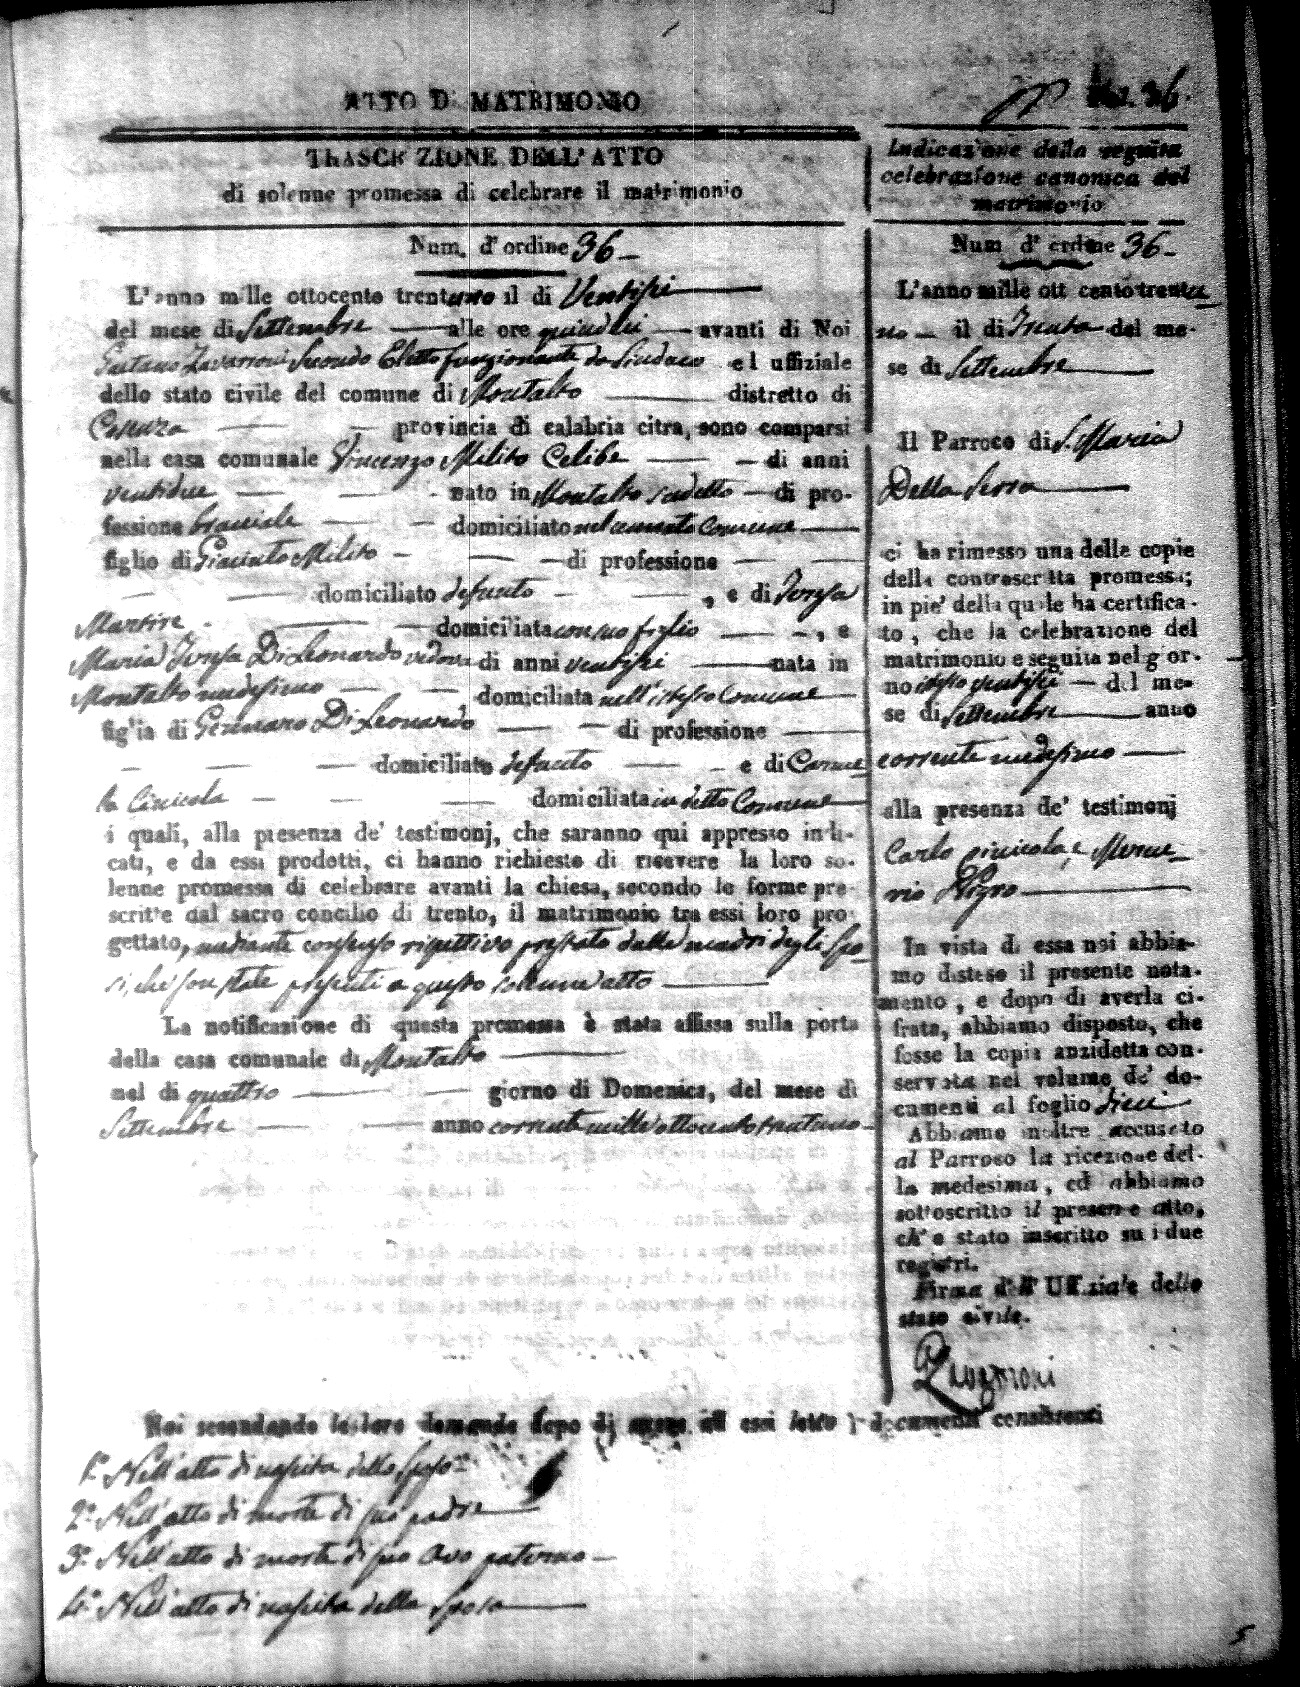 ATTO DI MATRIMONIO
36.
TRASCRIZIONE DELL'ATTO
di solenne promessa di celebrare il matrimonio
Num. d'ordine 36
L'anno mille ottocento trentuno il di Ventisei
del mese di Settembre alle ore quindici avanti di Noi
Gaetano Zavarroni Secondo Eletto funzionante da Sindaco ed uffiziale
dello stato civile del comune di Montalto distretto di
Cosenza provincia di calabria citra, sono comparsi
nella casa comunale Vincenzo Milito Celibe di anni
ventidue nato in Montalto sudetto di pro-
fessione bracciale domiciliato nel cennato Comune
figlio di Giacinto Milito di professione
domiciliato defunto , e di Teresa
Martire domiciliata con suo figlio , e
Maria Teresa Di Leonardo vedova di anni ventisei nata in
Montalto medesimo domiciliata nell'istesso Comune
figlia di Gennaro Di Leonardo di professione
domiciliato defunto e di Carme
la Cinicola domiciliata in detto Comune
i quali, alla presenza de' testimonj, che saranno qui appresso indi-
cati, e da essi prodotti, ci hanno richiesto di ricevere la loro so-
lenne promessa di celebrare avanti la chiesa, secondo le forme pre-
scritte dal sacro concilio di trento, il matrimonio tra essi loro pro-
gettato, mediante consenso rispettivo prestato dalle madri degli Spo
si, che son state presenti a questo solenne atto
La notificazione di questa promessa è stata affissa sulla porta
della casa comunale di Montalto
nel di quattro giorno di Domenica, del mese di
Settembre anno corrente mille ottocento trentuno
Indicazione della seguita
celebrazione canonica del
matrimonio
Num. d' ordine 36
L'anno mille ott cento trentu
no il di Trenta del me-
se di Settembre
Il Parroco di S. Maria
Della Serra
ci ha rimesso una delle copie
della controscritta promessa;
in pie' della quale ha certifica-
to, che la celebrazione del
matrimonio e seguita nel gior-
no istesso ventisei del me-
se di Settembre anno
corrente medesimo
alla presenza de' testimonj
Carlo Cinicola, e Mercu
rio Pizro
In vista di essa noi abbia-
mo disteso il presente nota-
mento, e dopo di averla ci-
frata, abbiamo disposto, che
fosse la copia anzidetta con-
servata nel volume de' do-
cumenti al foglio dieci
Abbiamo inoltre accusato
al Parroco la ricezione del-
la medesima, ed abbiamo
sottoscritto il presente atto,
ch' e stato inscritto su i due
registri.
Firma dell' Uffiziale dello
stato civile.
Zavarroni
Noi secondando la loro domanda dopo di aver ad essi letto i documenti consistenti
1.° Nell'atto di nascita dello Sposo
2.° Nell'atto di morte di suo padre
3.° Nell'atto di morte di suo Avo paterno
4.° Nell'atto di nascita della Sposa
5